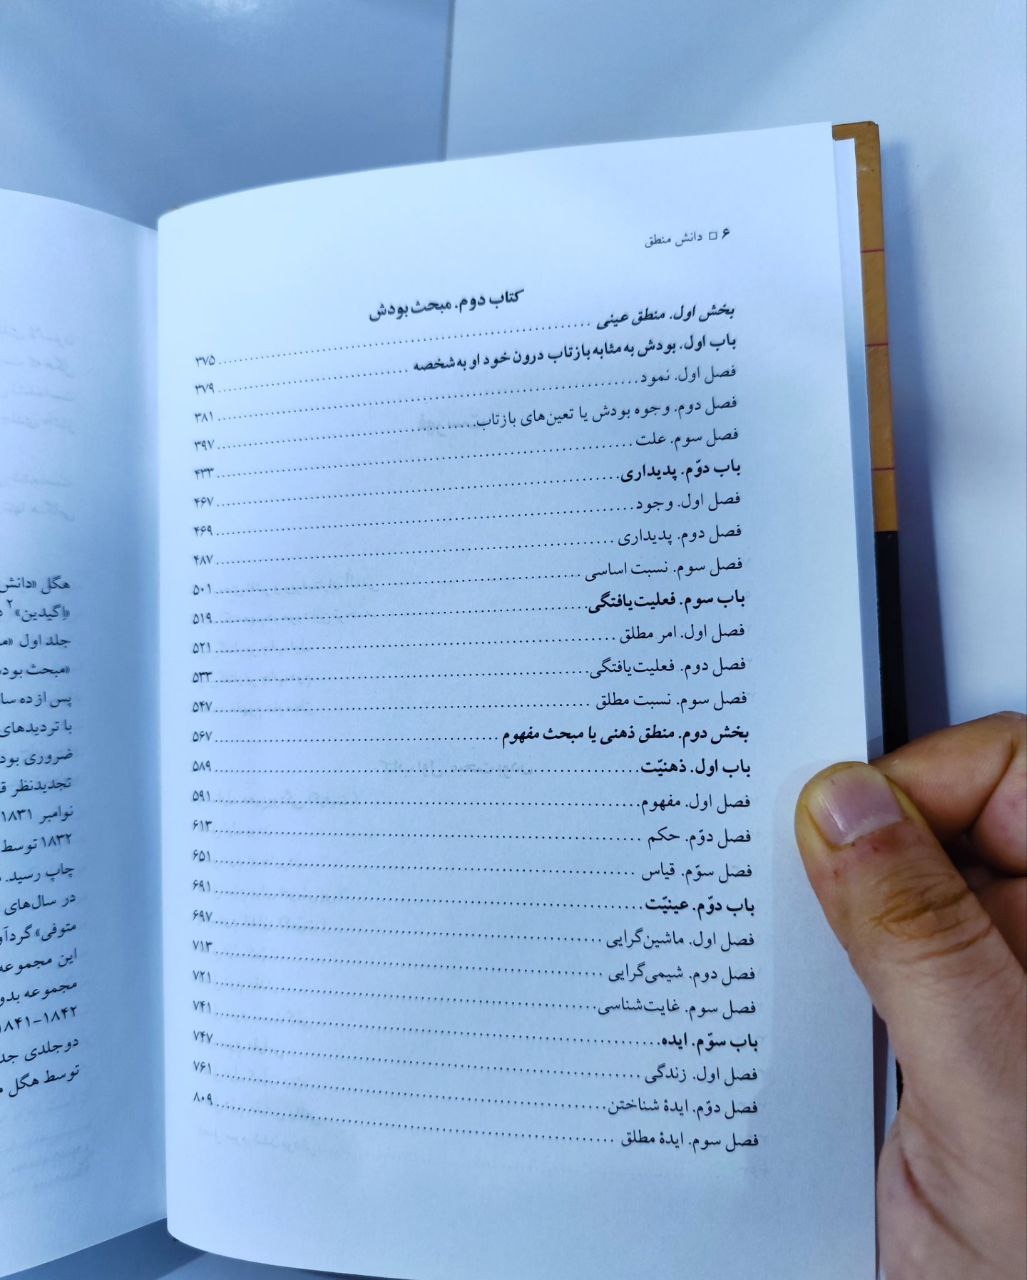 ۶ □ دانش منطق
کتاب دوم. مبحث بودش
بخش اول. منطق عینی ........ ۳۷۵
باب اول. بودش به مثابه بازتاب درون خود او به شخصه ........ ۳۷۹
فصل اول. نمود ........ ۳۸۱
فصل دوم. وجوه بودش یا تعین‌های بازتاب ........ ۳۹۷
فصل سوم. علت ........ ۴۳۳
باب دوّم. پدیداری ........ ۴۶۷
فصل اول. وجود ........ ۴۶۹
فصل دوم. پدیداری ........ ۴۸۷
فصل سوم. نسبت اساسی ........ ۵۰۱
باب سوم. فعلیت‌یافتگی ........ ۵۱۹
فصل اول. امر مطلق ........ ۵۲۱
فصل دوم. فعلیت‌یافتگی ........ ۵۳۳
فصل سوم. نسبت مطلق ........ ۵۴۷
بخش دوم. منطق ذهنی یا مبحث مفهوم ........ ۵۶۷
باب اول. ذهنیّت ........ ۵۸۹
فصل اول. مفهوم ........ ۵۹۱
فصل دوّم. حکم ........ ۶۱۳
فصل سوّم. قیاس ........ ۶۵۱
باب دوّم. عینیّت ........ ۶۹۱
فصل اول. ماشین‌گرایی ........ ۶۹۷
فصل دوم. شیمی‌گرایی ........ ۷۱۳
فصل سوم. غایت‌شناسی ........ ۷۲۱
باب سوّم. ایده ........ ۷۴۱
فصل اول. زندگی ........ ۷۴۷
فصل دوّم. ایدۀ شناختن ........ ۷۶۱
فصل سوم. ایدۀ مطلق ........ ۸۰۹
هگل «دانش
«اِگیدین»۲
جلد اول
«مبحث
پس از ده
با تردیدهای
ضروری بود
تجدیدنظر
نوامبر ۱۸۳۱
۱۸۳۲ توسط
چاپ رسید.
در سال‌های
متوفی»
این مجموعه
مجموعه
۱۸۴۱–۱۸۴۲
دوجلدی
توسط هگل